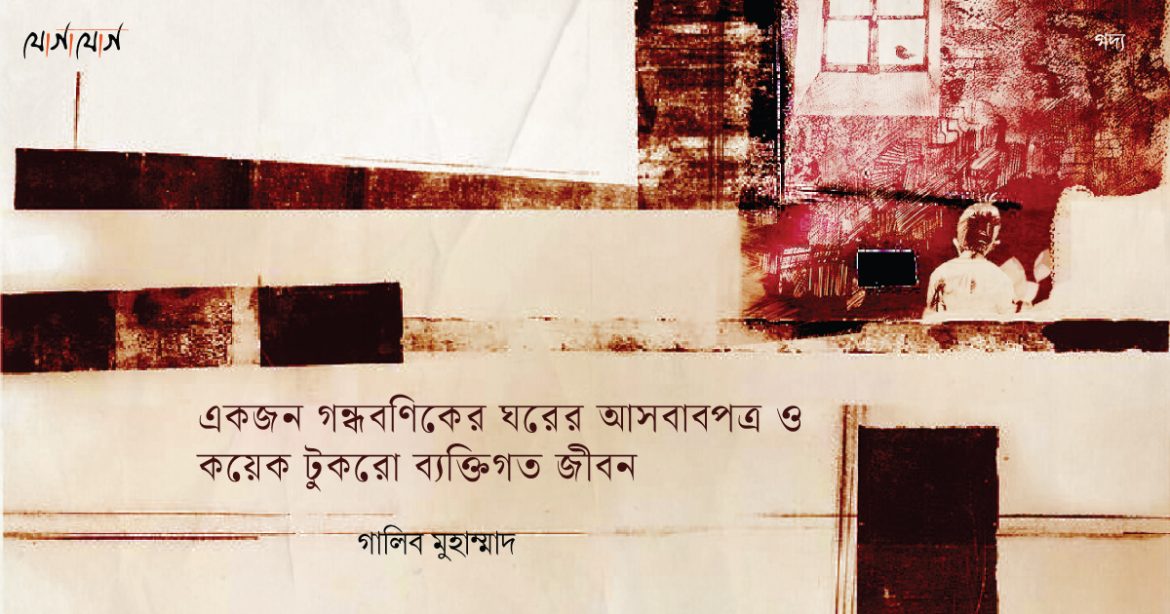 যোগাযোগ
গদ্য
একজন গন্ধবণিকের ঘরের আসবাবপত্র ও
কয়েক টুকরো ব্যক্তিগত জীবন
গালিব মুহাম্মাদ